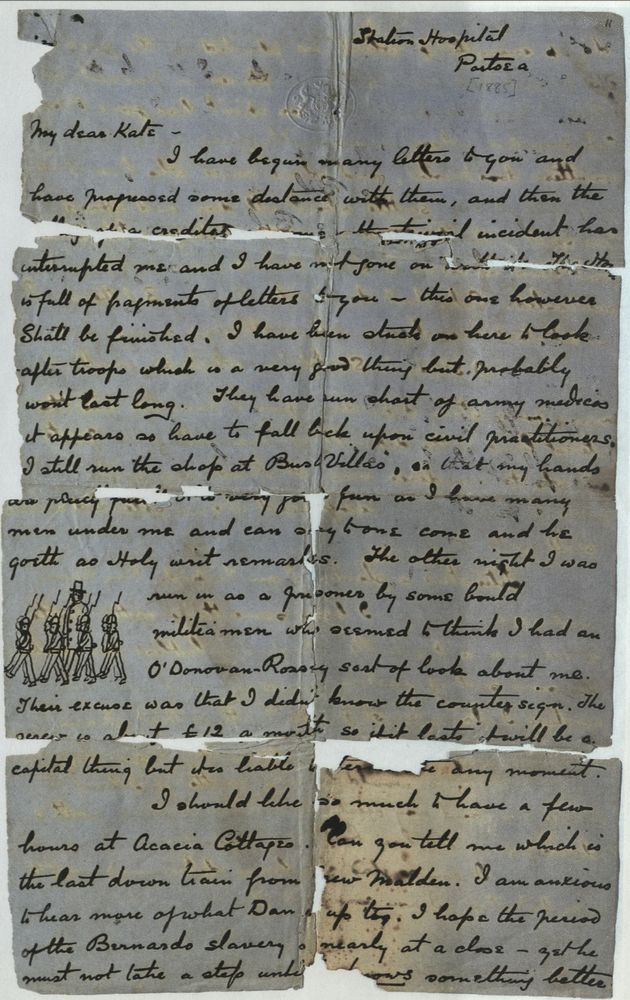 11
Station Hospital
Portsea
[1885]
My dear Kate –
I have begun many letters to you and
have progressed some distance with them, and then the
of a creditor or some the trivial incident has
interrupted me and I have not gone on with it. The
is full of fragments of letters to you – this one however
shall be finished. I have been stuck on here to look
after troops which is a very good thing but probably
won't last long. They have run short of army medicos
it appears so have to fall back upon civil practitioners.
I still run the shop at Bush Villas, so that my hands
are pretty full. It is very good fun as I have many
men under me and can say to one come and he
goeth as Holy writ remarks. The other night I was
run in as a prisoner by some bould
militia men who seemed to think I had an
O'Donovan-Rossey sort of look about me.
Their excuse was that I didn't know the countersign. The
screw is about £12 a month so if it lasts it will be a
capital thing but it is liable to at any moment.
I should like so much to have a few
hours at Acacia Cottages. Can you tell me which is
the last down train from New Malden. I am anxious
to hear more of what Dan is up to. I hope the period
of the Bernardo slavery is nearly at a close – yet he
must not take a step until he knows something better